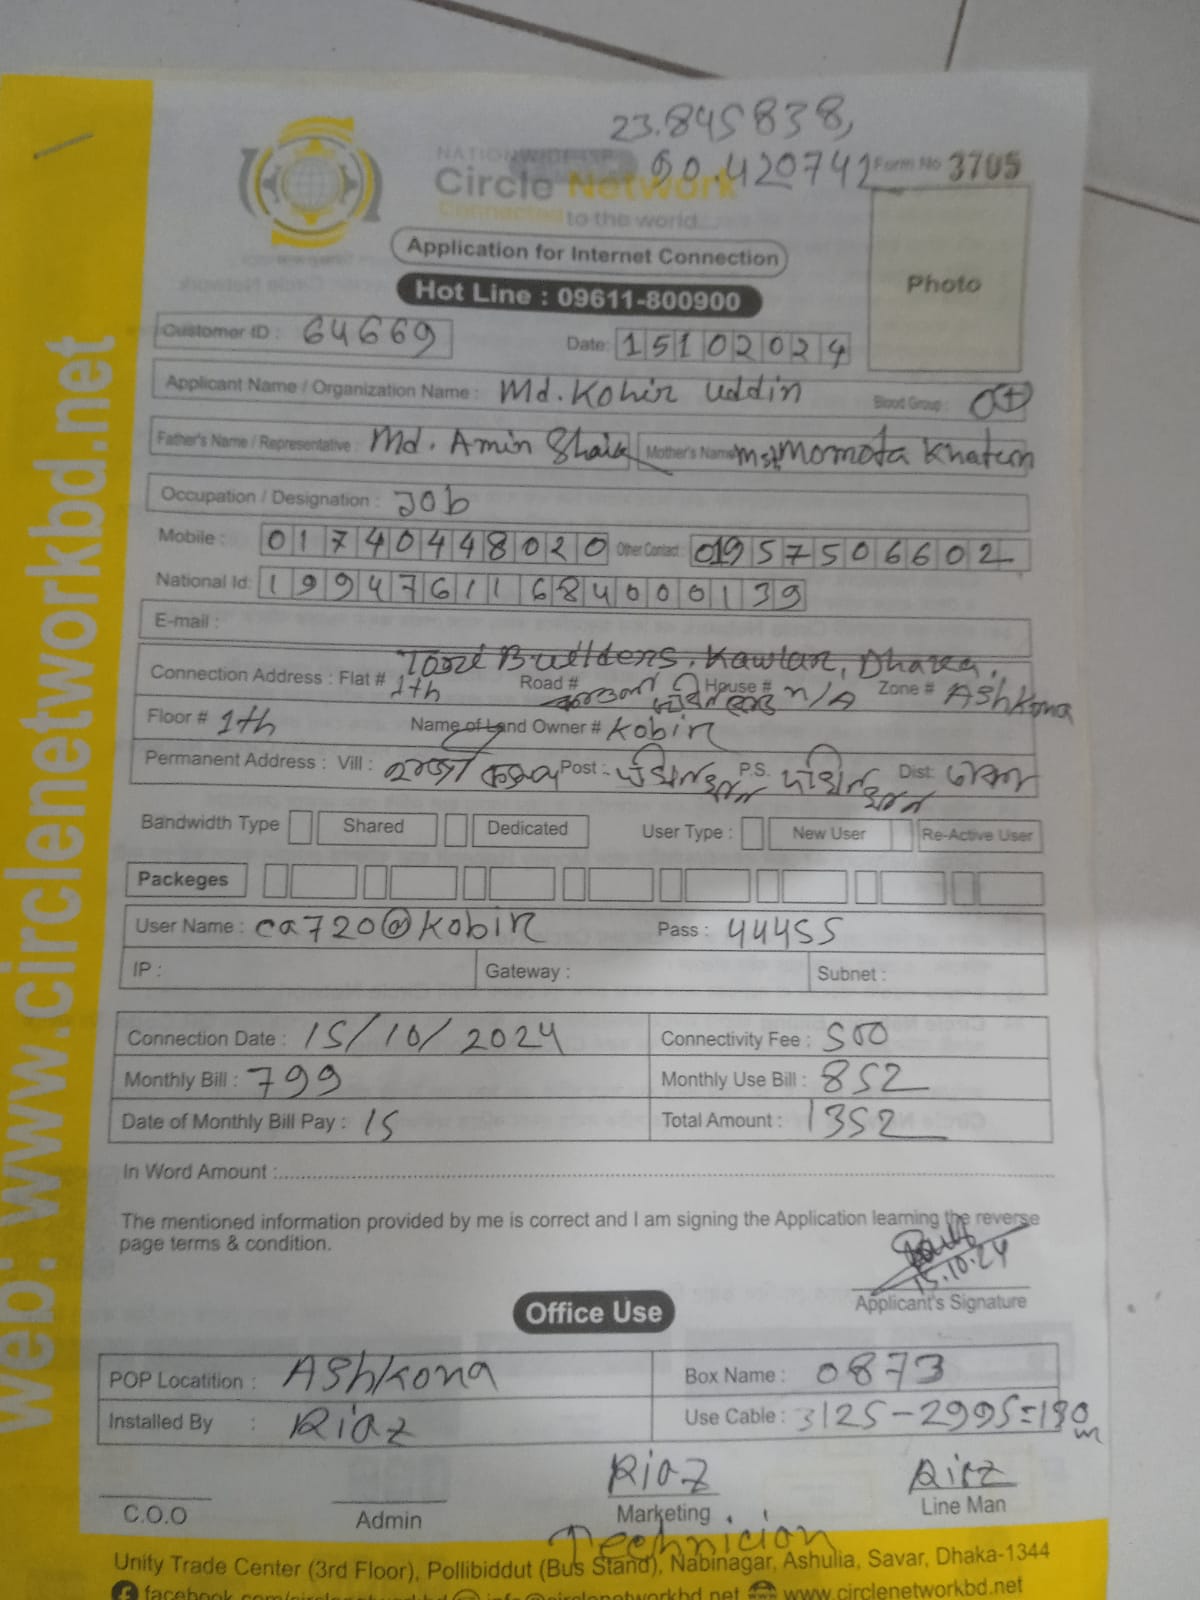 23.845838,
90.420742 Form No 3705
NATIONWIDE ISP
Circle Network
Connected to the world
Application for Internet Connection
Photo
Hot Line : 09611-800900
Customer ID : 64669 Date: 15102024
Applicant Name / Organization Name : Md. Kohir uddin Blood Group : O+
Father's Name / Representative : Md. Amin Shaik Mother's Name Mst Momota Khatun
Occupation / Designation : Job
Mobile : 01740448020 Other Contact : 01957506602
National Id: 19947611684000139
E-mail :
Builders, Kawlar,
Connection Address : Flat # 1th Road # House # n/A Zone # Ashkona
Floor # 1th Name of Land Owner # Kobir
Permanent Address : Vill : Post : P.S. Dist:
Bandwidth Type Shared Dedicated User Type : New User Re-Active User
Packeges
User Name : ca720@kobir Pass : 44455
IP : Gateway : Subnet :
Connection Date : 15/10/2024 Connectivity Fee : 500
Monthly Bill : 799 Monthly Use Bill : 852
Date of Monthly Bill Pay : 15 Total Amount : 1352
In Word Amount :
The mentioned information provided by me is correct and I am signing the Application learning the reverse
page terms & condition.
15.10.24
Applicant's Signature
Office Use
POP Locatition : Ashkona Box Name : 0873
Installed By : Riaz Use Cable : 3125-2995=130m
Riaz Riaz
C.O.O Admin Marketing Line Man
Technician
Unity Trade Center (3rd Floor), Pollibiddut (Bus Stand), Nabinagar, Ashulia, Savar, Dhaka-1344
www.circlenetworkbd.net
web: www.circlenetworkbd.net